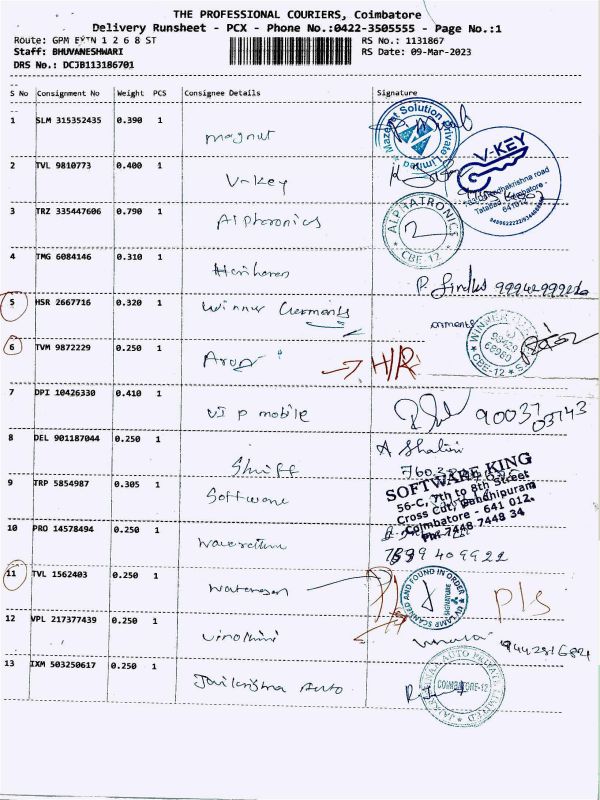 THE PROFESSIONAL COURIERS, Coimbatore
Delivery Runsheet - PCX - Phone No.:0422-3505555 - Page No.:1
Route: GPM EXTN 1 2 6 8 ST RS No.: 1131867
Staff: BHUVANESHWARI RS Date: 09-Mar-2023
DRS No.: DCJB113186701
S No Consignment No Weight PCS Consignee Details Signature
1 SLM 315352435 0.390 1 magnut
Mazenet Solution Private Limited
2 TVL 9810773 0.400 1 V-Key
V-KEY
Tatabad, Coimbatore -
641012
3 TRZ 335447606 0.790 1 Alphatronics
ALPHATRONICS
CBE-12
4 TMG 6084146 0.310 1 Hariharan
5 HSR 2667716 0.320 1 Winner Garments
WINNER
CBE-12
6 TVM 9872229 0.250 1 Arun → H/R
7 DPI 10426330 0.410 1 Vi p mobile
8 DEL 901187044 0.250 1 A Shalini
9 TRP 5854987 0.305 1 Software
SOFTWARE KING
56-C, 7th to 8th Street
Cross Cut, Gandhipuram
Coimbatore - 641 012.
Ph: 7448 7448 34
10 PRO 14578494 0.250 1
11 TVL 1562403 0.250 1
UV LAMP SCANNED AND FOUND IN ORDER
Pls
12 VPL 217377439 0.250 1 Vinothini
13 IXM 503250617 0.250 1 Jaikrishna Auto
JAIKRISHNAA AUTO PRIVATE LIMITED
COIMBATORE-12